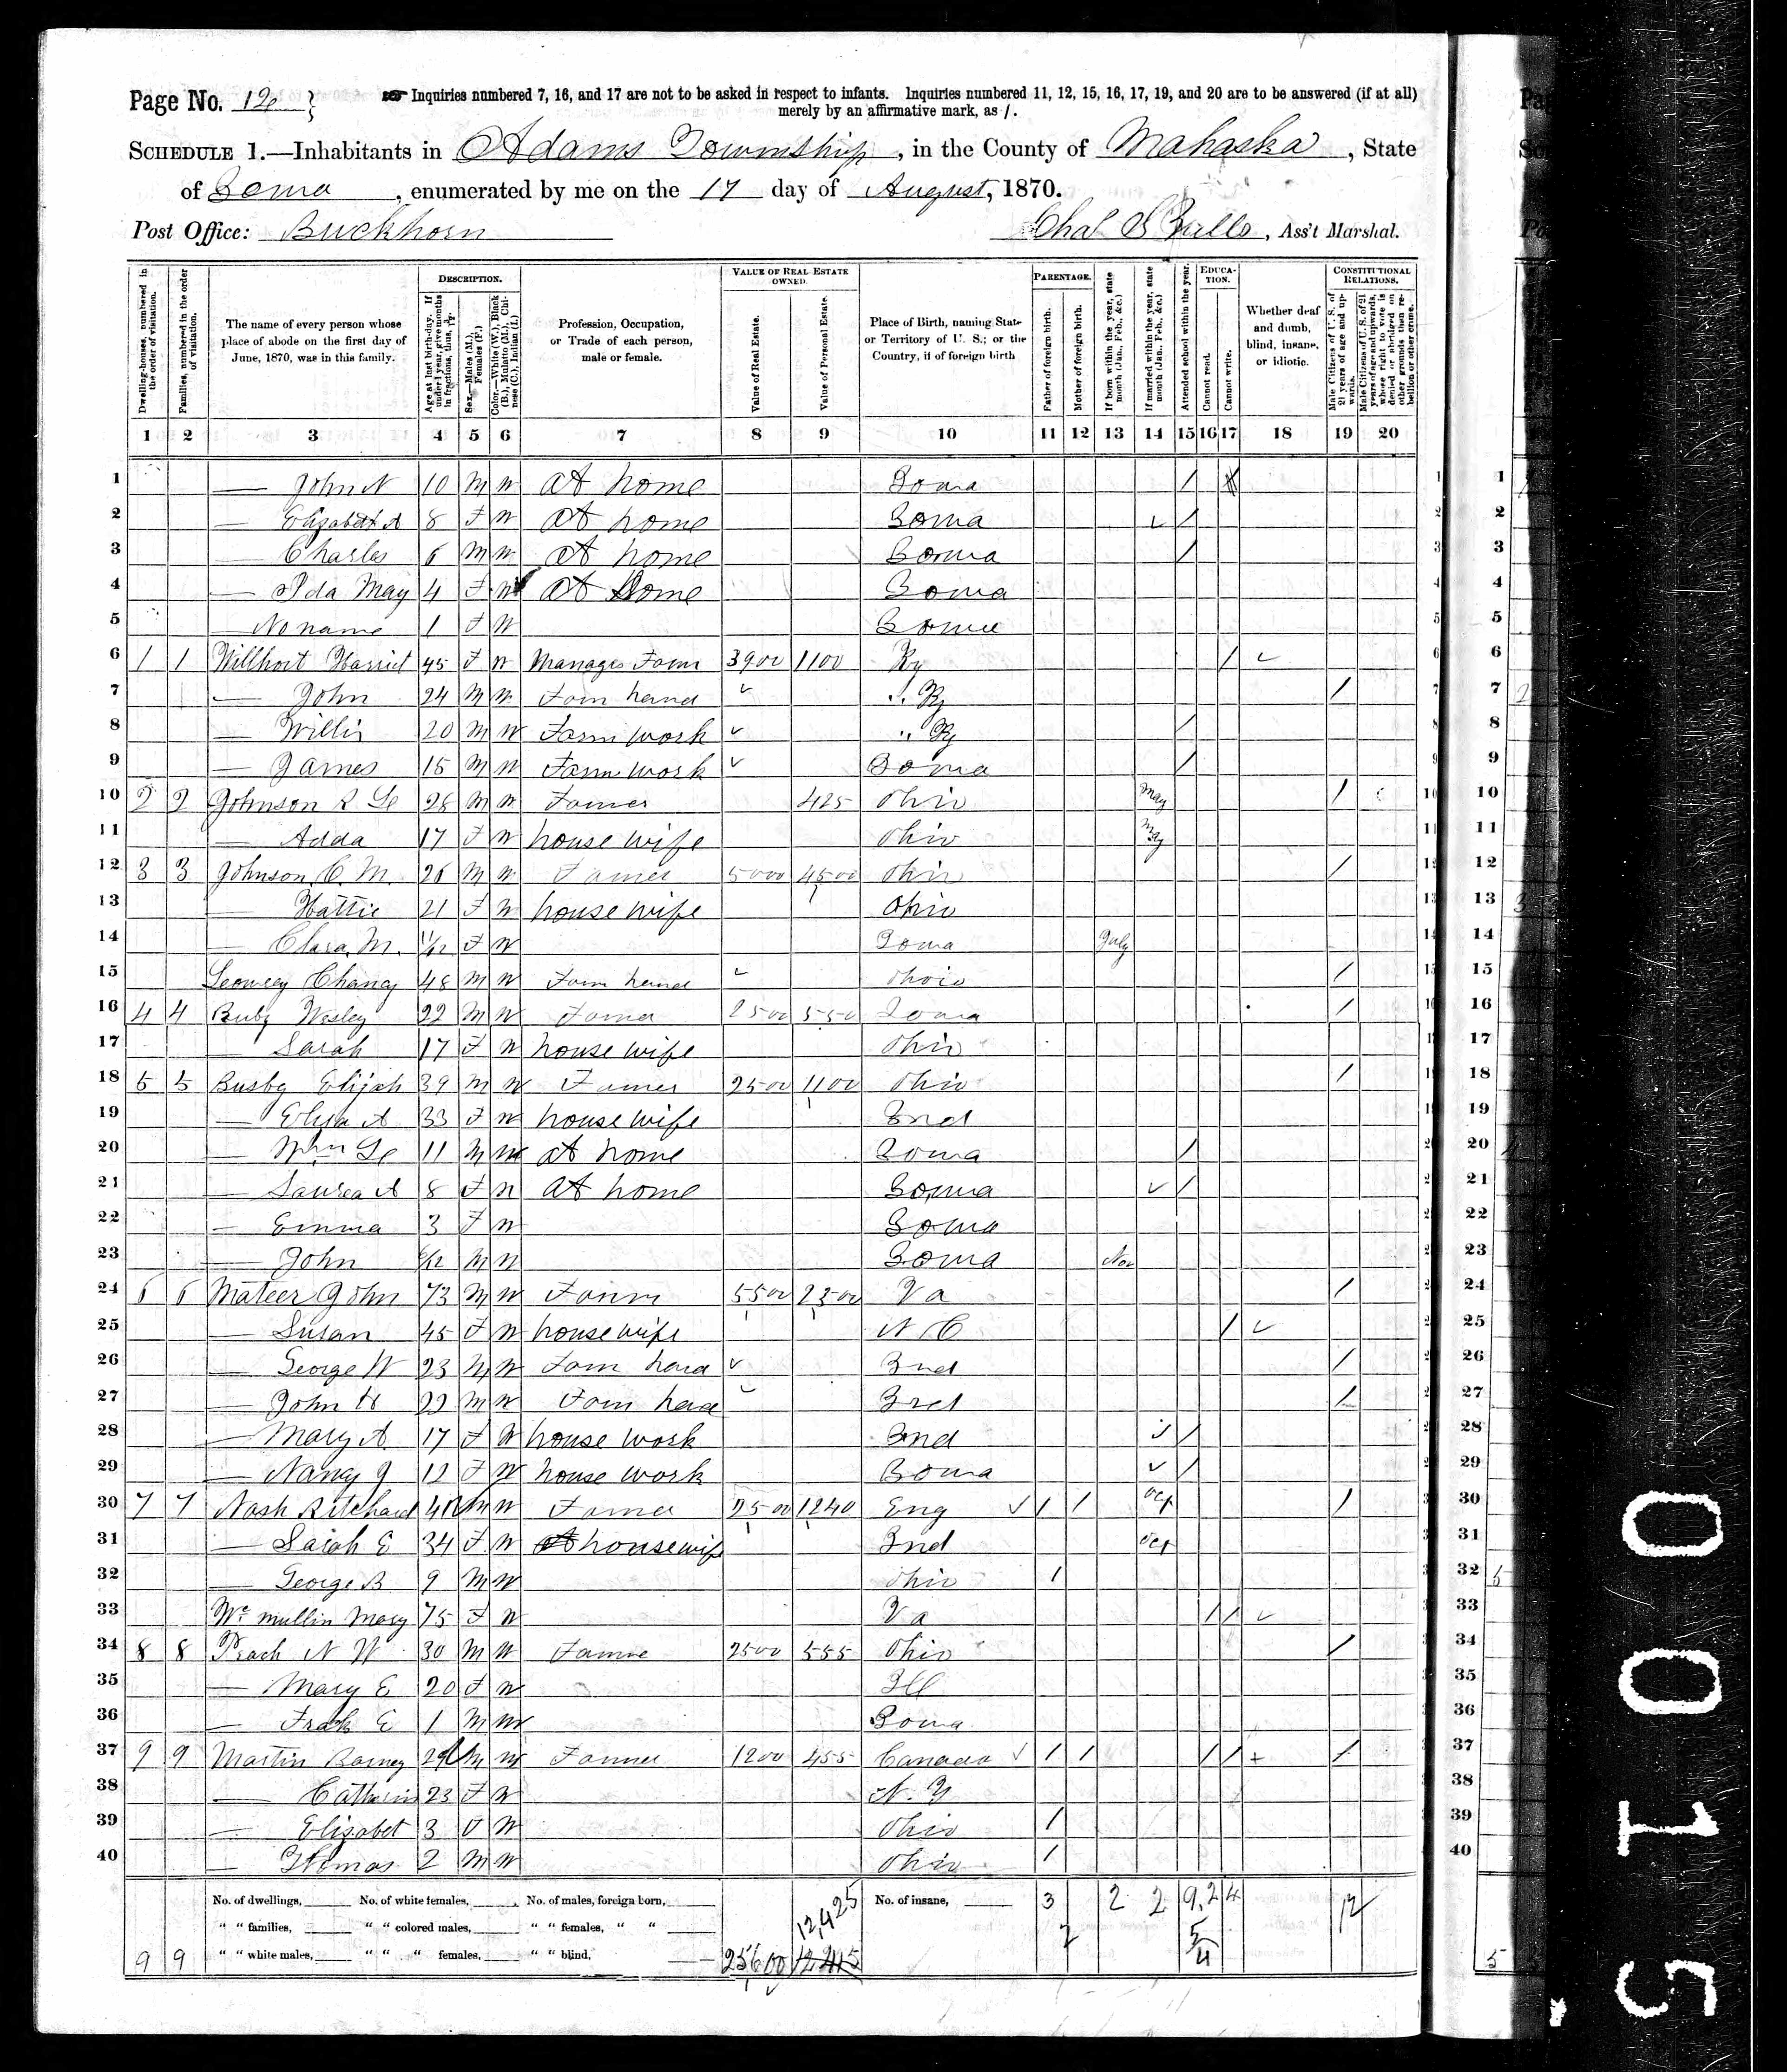 Page No. 12
Inquiries numbered 7, 16, and 17 are not to be asked in respect to infants. Inquiries numbered 11, 12, 15, 16, 17, 19, and 20 are to be answered (if at all)
merely by an affirmative mark, as /.
SCHEDULE 1.—Inhabitants in Adams Township, in the County of Mahaska, State
of Iowa, enumerated by me on the 17 day of August, 1870.
Post Office: Buckhorn
Ass't Marshal.
DESCRIPTION. VALUE OF REAL ESTATE OWNED. PARENTAGE. EDUCATION. CONSTITUTIONAL RELATIONS.
Dwelling-houses, numbered in the order of visitation.
Families, numbered in the order of visitation.
The name of every person whose place of abode on the first day of June, 1870, was in this family.
Age at last birth-day. If under 1 year, give months in fractions, thus, 3/12.
Sex.—Males (M.), Females (F.)
Color.—White (W.), Black (B.), Mulatto (M.), Chinese (C.), Indian (I.)
Profession, Occupation, or Trade of each person, male or female.
Value of Real Estate.
Value of Personal Estate.
Place of Birth, naming State or Territory of U. S.; or the Country, if of foreign birth
Father of foreign birth.
Mother of foreign birth.
If born within the year, state month (Jan., Feb., &c.)
If married within the year, state month (Jan., Feb., &c.)
Attended school within the year.
Cannot read.
Cannot write.
Whether deaf and dumb, blind, insane, or idiotic.
Male Citizens of U. S. of 21 years of age and upwards.
Male Citizens of U. S. of 21 years of age and upwards, whose right to vote is denied or abridged on other grounds than rebellion or other crime.
1 2 3 4 5 6 7 8 9 10 11 12 13 14 15 16 17 18 19 20
1 — John N 10 M W at home Iowa / 1
2 — Elizabeth A 8 F W at home Iowa ✓ / 2
3 — Charles 6 M W at home Iowa / 3
4 — Ida May 4 F W at home Iowa 4
5 — No name 1 F W Iowa 5
6 1 1 Willhoit Harriet 45 F W Manages Farm 3900 1100 Ky / ✓ 6
7 — John 24 M W Farm hand ✓ " Ky / 7
8 — Willis 20 M W Farm work ✓ " Ky / 8
9 — James 15 M W Farm work ✓ Iowa / 9
10 2 2 Johnson R 28 M W Farmer 425 Ohio May / 10
11 — Adda 17 F W house wife Ohio May 11
12 3 3 Johnson C. M. 26 M W Farmer 5000 4500 Ohio / 12
13 — Hattie 21 F W house wife Ohio 13
14 — Clara M. 11/12 F W Iowa July 14
15 Chancy 48 M W Farm hand ✓ Ohoio / 15
16 4 4 Buby Wesley 22 M W Farmer 2500 550 Iowa / 16
17 — Sarah 17 F W house wife Ohio 17
18 5 5 Busby Elijah 39 M W Farmer 2500 1100 Ohio / 18
19 — Eliza A 33 F W house wife Ind 19
20 — Wm 11 M W at home Iowa / 20
21 — Laura A 8 F W at home Iowa ✓ / 21
22 — Emma 3 F W Iowa 22
23 — John M W Iowa Nov 23
24 6 6 Mateer John 73 M W Farmr 5500 2300 Va / 24
25 — Susan 45 F W house wife N C / ✓ 25
26 — George W 23 M W Farm hand ✓ Ind / 26
27 — John H 22 M W Farm hand ✓ Ind / 27
28 — Mary A. 17 F W house work Ind ✓ / 28
29 — Nancy J 12 F W house work Iowa ✓ / 29
30 7 7 Nash Ritchard M W Farmer 2500 1240 Eng ✓ / / Oct / 30
31 — Sarah E 34 F W housewife Ind Oct 31
32 — George B 9 M W Ohio / 32
33 Mc mullin Mary 75 F W Va / / ✓ 33
34 8 8 N W 30 M W Farme 2500 555 Ohio / 34
35 — Mary E 20 F W Ill 35
36 — Frank E 1 M W Iowa 36
37 9 9 Martin Barney 29 M W Farmer 1200 455 Canada ✓ / / / / + / 37
38 — Catherin 23 F W N. Y 38
39 — Elizabet 3 F W Ohio / 39
40 — Thomas 2 M W Ohio / 40
No. of dwellings, No. of white females, No. of males, foreign born, 12,425 No. of insane, 3 2 2 9 2 4 12
" " families, " " colored males, " " females, " " 2 5
9 9 " " white males, " " " females, " " blind, 25600 12415 4
001015